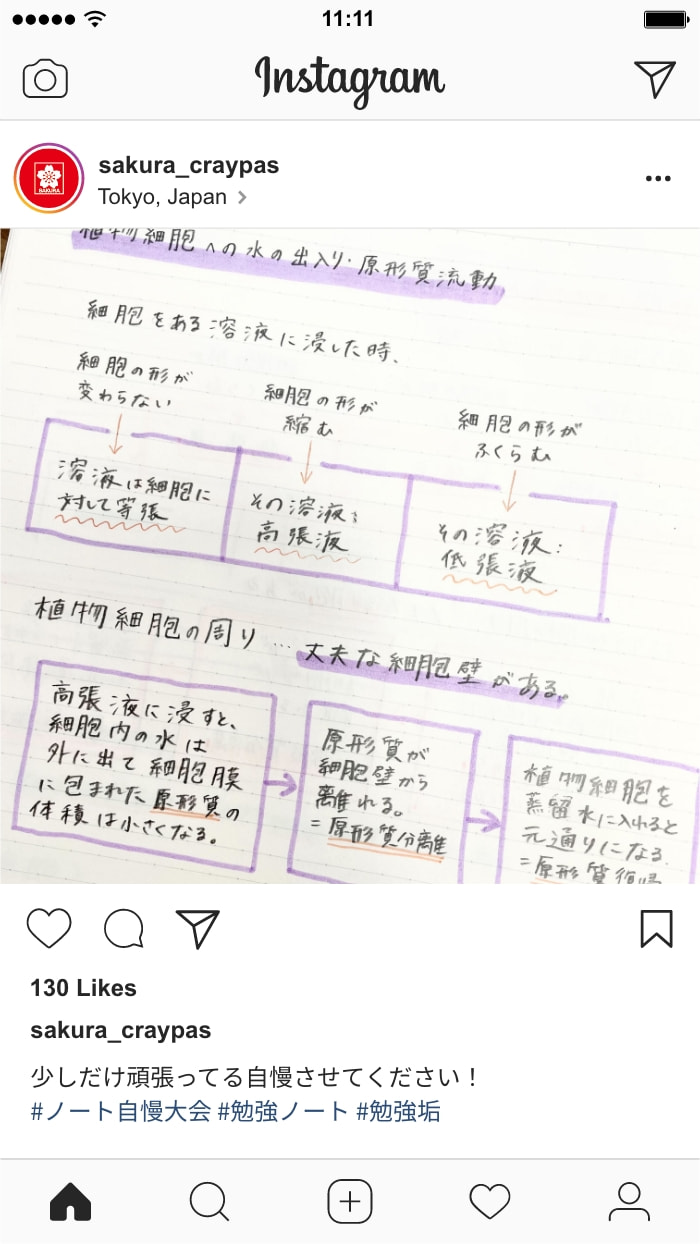 11:11
Instagram
sakura_craypas
Tokyo, Japan
SAKURA
植物細胞への水の出入り・原形質流動
細胞をある溶液に浸した時、
細胞の形が
変わらない
細胞の形が
縮む
細胞の形が
ふくらむ
溶液は細胞に
対して等張
その溶液:
高張液
その溶液:
低張液
植物細胞の周り…丈夫な細胞壁がある。
高張液に浸すと、
細胞内の水は
外に出て細胞膜
に包まれた原形質の
体積は小さくなる。
原形質が
細胞壁から
離れる。
=原形質分離
植物細胞を
蒸留水に入れると
元通りになる.
=原形質復帰
130 Likes
sakura_craypas
少しだけ頑張ってる自慢させてください！
#ノート自慢大会 #勉強ノート #勉強垢